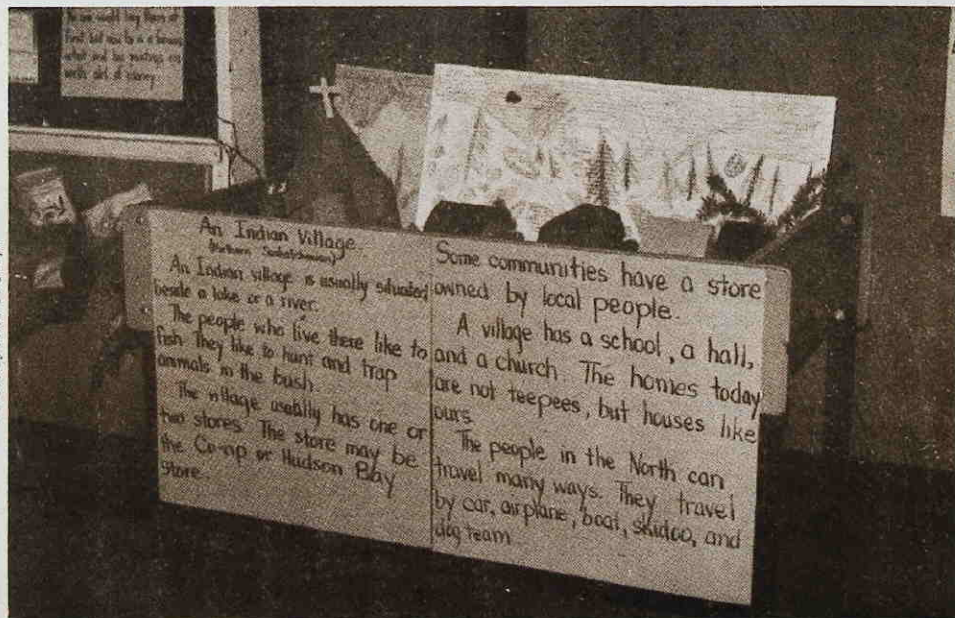 we would
first, but now he is a
artist and his
worth alot of money.
An Indian Village
(Northern Saskatchewan)
An Indian village is usually situated
beside a lake or a river.
The people who live there like to
fish. They like to hunt and trap
animals in the bush.
The village usually has one or
two stores. The store may be
the Co-op or Hudson Bay
store.
Some communities have a store
owned by local people.
A village has a school, a hall,
and a church. The homes today
are not teepees, but houses like
ours.
The people in the North can
travel many ways. They travel
by car, airplane, boat, skidoo, and
dog team